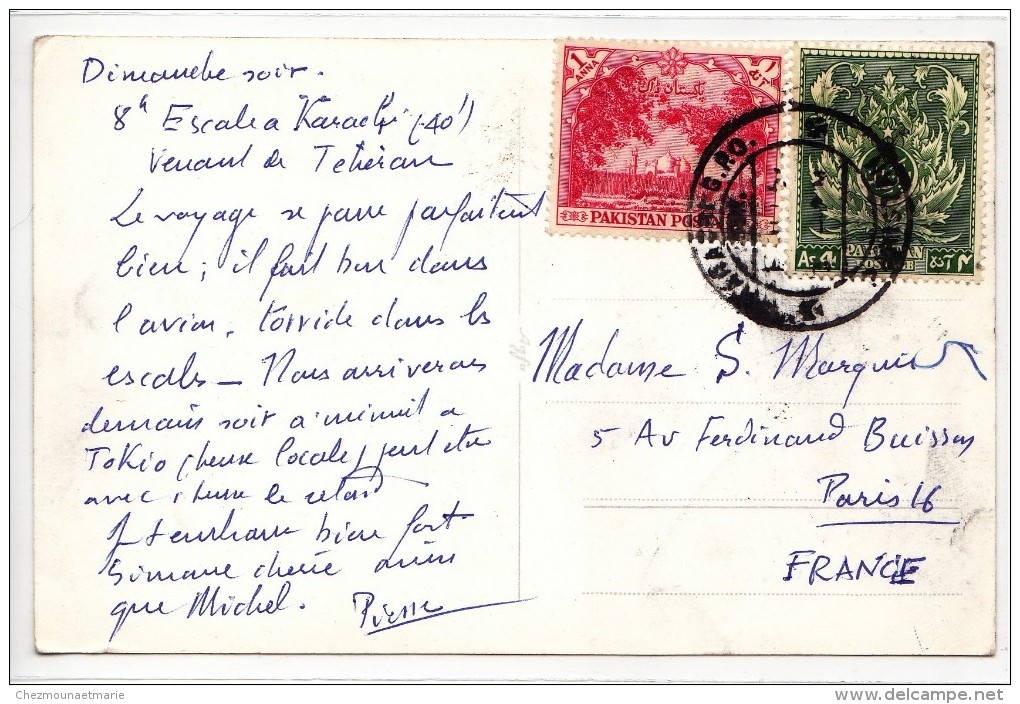 Dimanche soir.
8h Escale a Karachi (-40')
Venant de Teheran
Le voyage se passe parfaitement
bien ; il fait bon dans
l'avion, torride dans les
escales — Nous arriverons
demain soir a minuit a
Tokio (heure locale) peut etre
avec 1 heure de retard
Je t'embrasse bien fort
Simone cherie ainsi
que Michel. Pierre
1
ANNA
پاکستان
PAKISTAN POST
PAKISTAN
POSTAGE
As 4
۴ آنہ
KARACHI G.P.O.
Madame S.
5 Av Ferdinand Buisson
Paris 16
FRANCE
Chezmounaetmarie
delcampe.net